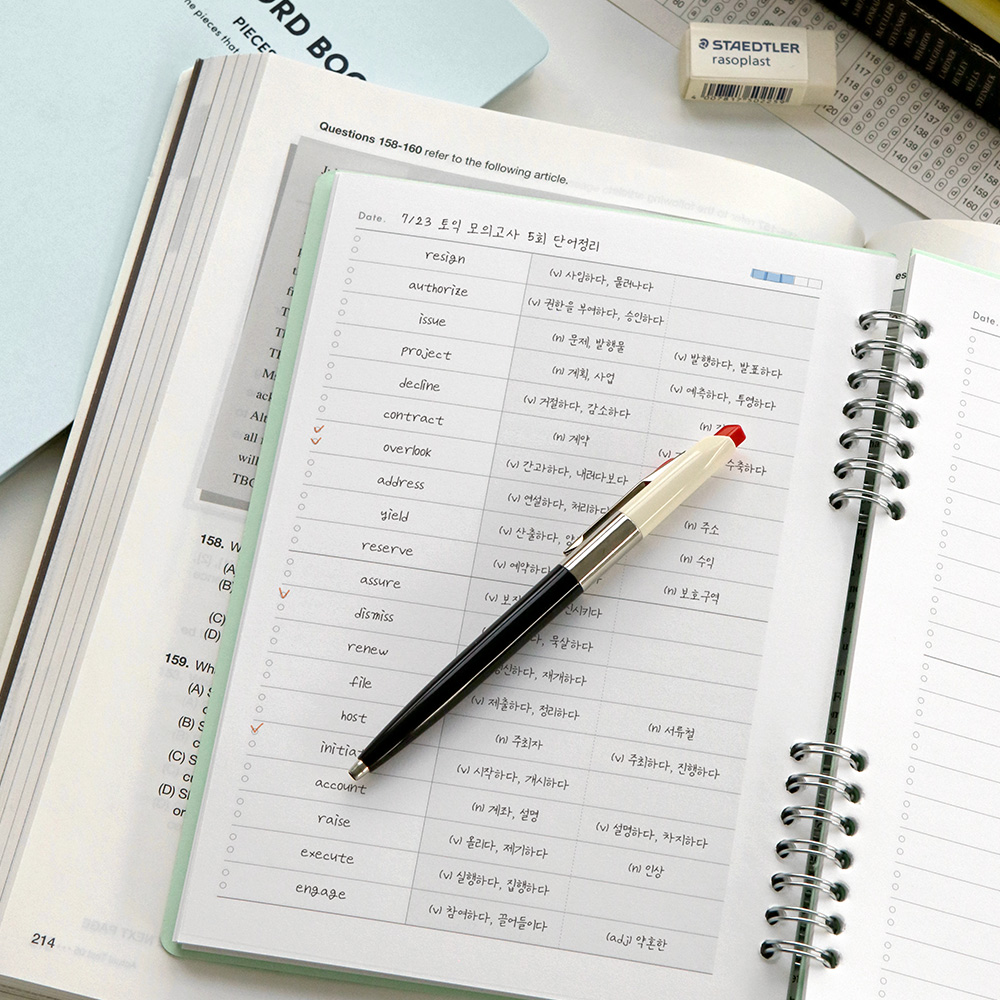 ORD BOO
PIECES
the pieces that
STAEDTLER
rasoplast
Questions 158-160 refer to the following article.
Date. 7/23 토익 모의고사 5회 단어정리
resign (v) 사임하다, 물러나다
authorize (v) 권한을 부여하다, 승인하다
issue (n) 문제, 발행물 (v) 발행하다, 발표하다
project (n) 계획, 사업 (v) 예측하다, 투영하다
decline (v) 거절하다, 감소하다 (n)
contract (n) 계약 (v) 수축하다
overlook (v) 간과하다, 내려다보다
address (v) 연설하다, 처리하다 (n) 주소
yield (v) 산출하다, (n) 수익
reserve (v) 예약하다 (n) 보호구역
assure (v) 보장 신시키다
dismiss 다, 묵살하다
renew 갱신하다, 재개하다
file (v) 제출하다, 정리하다 (n) 서류철
host (n) 주최자 (v) 주최하다, 진행하다
initiat (v) 시작하다, 개시하다
account (n) 계좌, 설명 (v) 설명하다, 차지하다
raise (v) 올리다, 제기하다 (n) 인상
execute (v) 실행하다, 집행하다
engage (v) 참여하다, 끌어들이다 (adj) 약혼한
Date.
158. W
(A)
(B)
(C)
(D)
159. Wh
(A) S
(B) S
(C) S
(D) Si
or
214